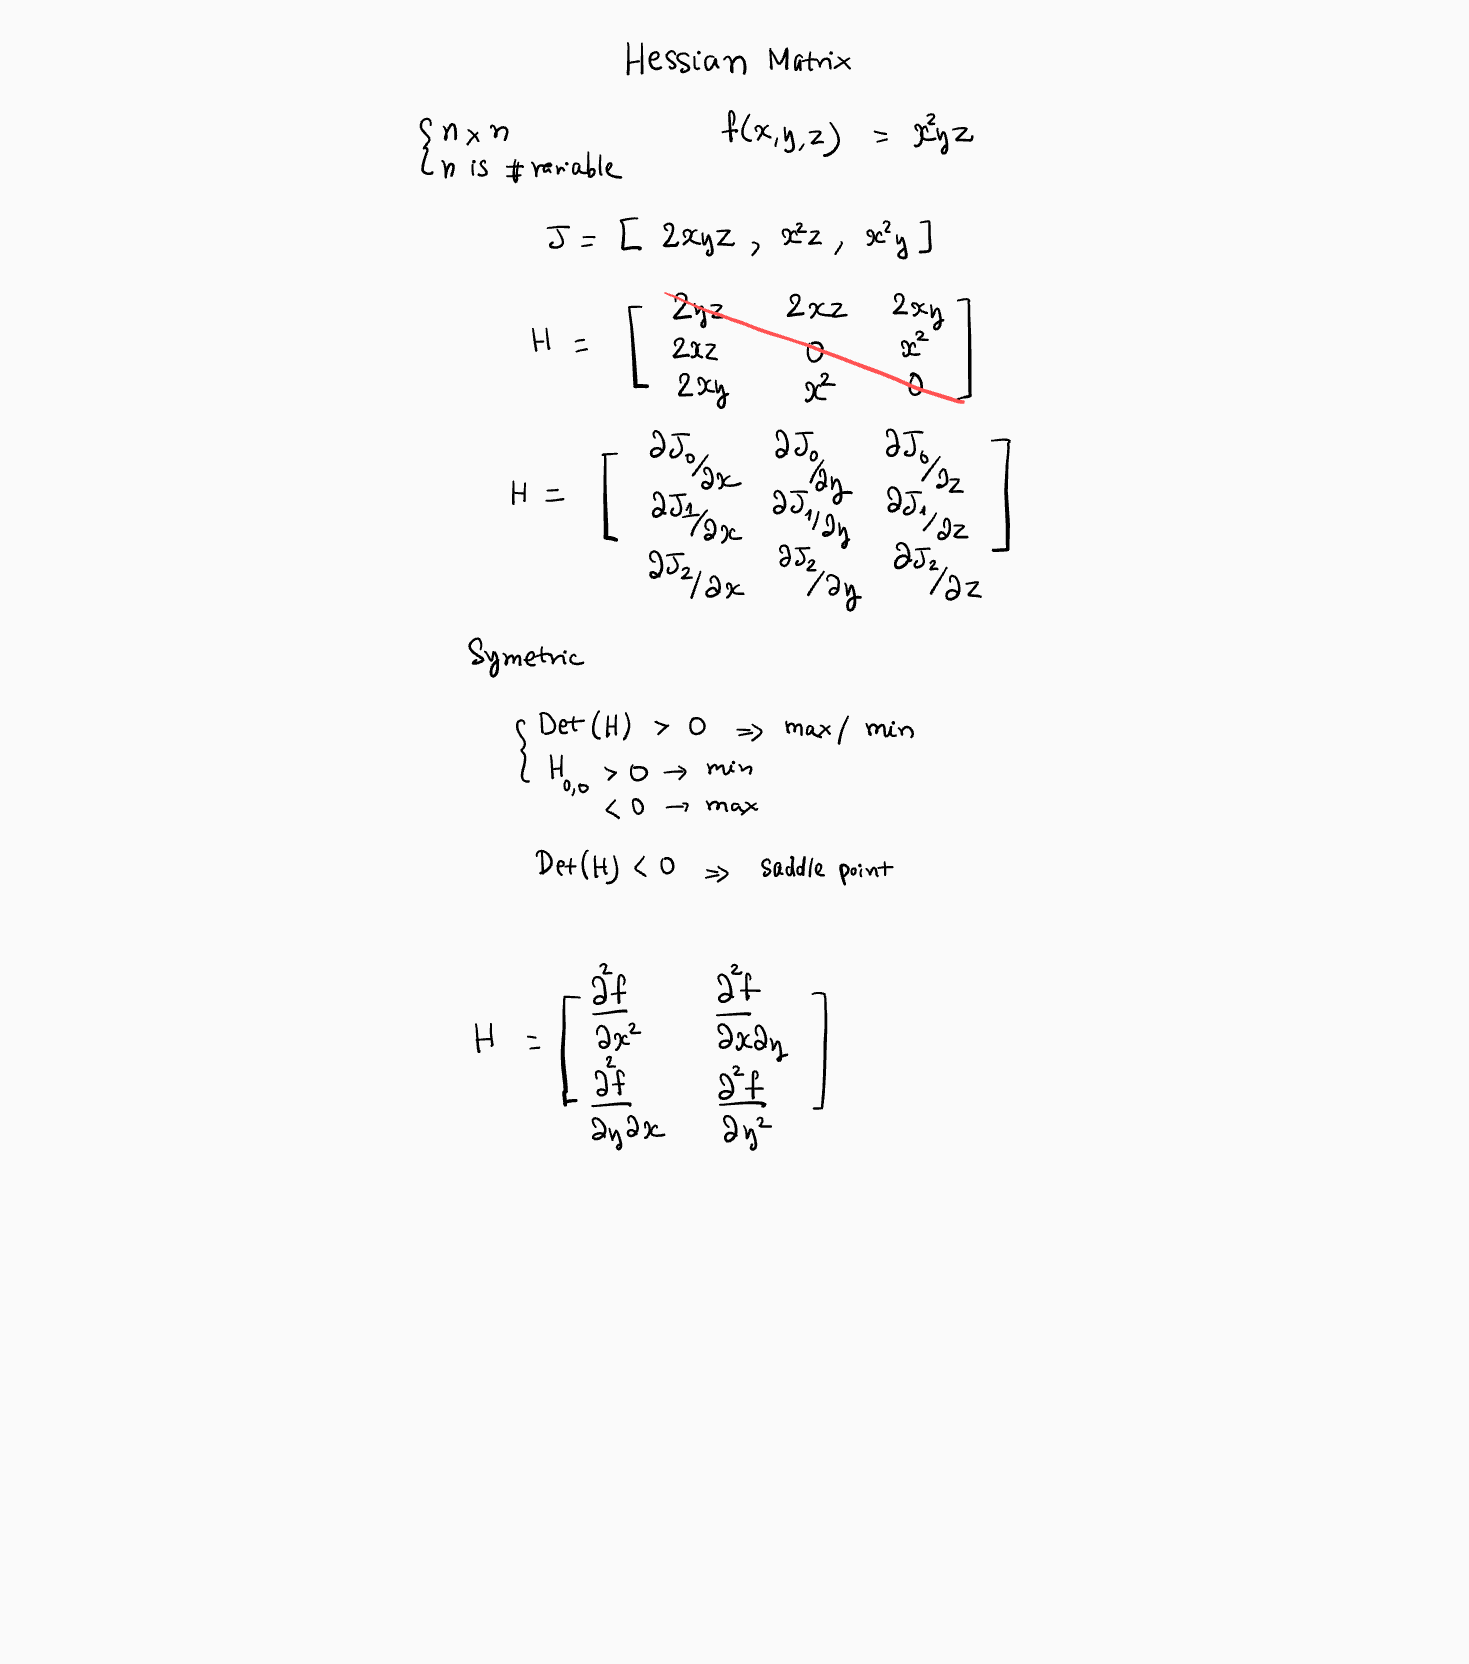 Hessian Matrix
{ n x n f(x,y,z) = x²yz
n is # variable
J = [ 2xyz , x²z , x²y ]
2yz 2xz 2xy
H = [ 2xz 0 x² ]
2xy x² 0
∂J₀/∂x ∂J₀/∂y ∂J₀/∂z
H = [ ∂J₁/∂x ∂J₁/∂y ∂J₁/∂z ]
∂J₂/∂x ∂J₂/∂y ∂J₂/∂z
Symetric
{ Det(H) > 0 ⇒ max/ min
H₀,₀ > 0 → min
< 0 → max
Det(H) < 0 ⇒ saddle point
∂²f/∂x² ∂²f/∂x∂y
H = [ ]
∂²f/∂y∂x ∂²f/∂y²